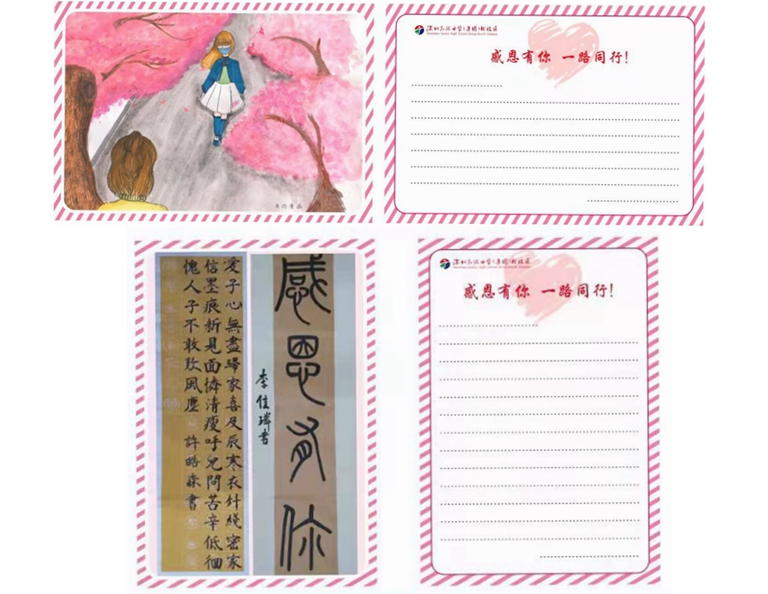 深圳高级中学(集团)北校区
感恩有你 一路同行!
愛子心無盡歸家喜及辰寒衣針綫密家
信墨痕新見面憐清瘦呼兒問苦辛低徊
愧人子不敢歎風塵 許皓森書
感恩有你
深圳高级中学(集团)北校区
感恩有你 一路同行!